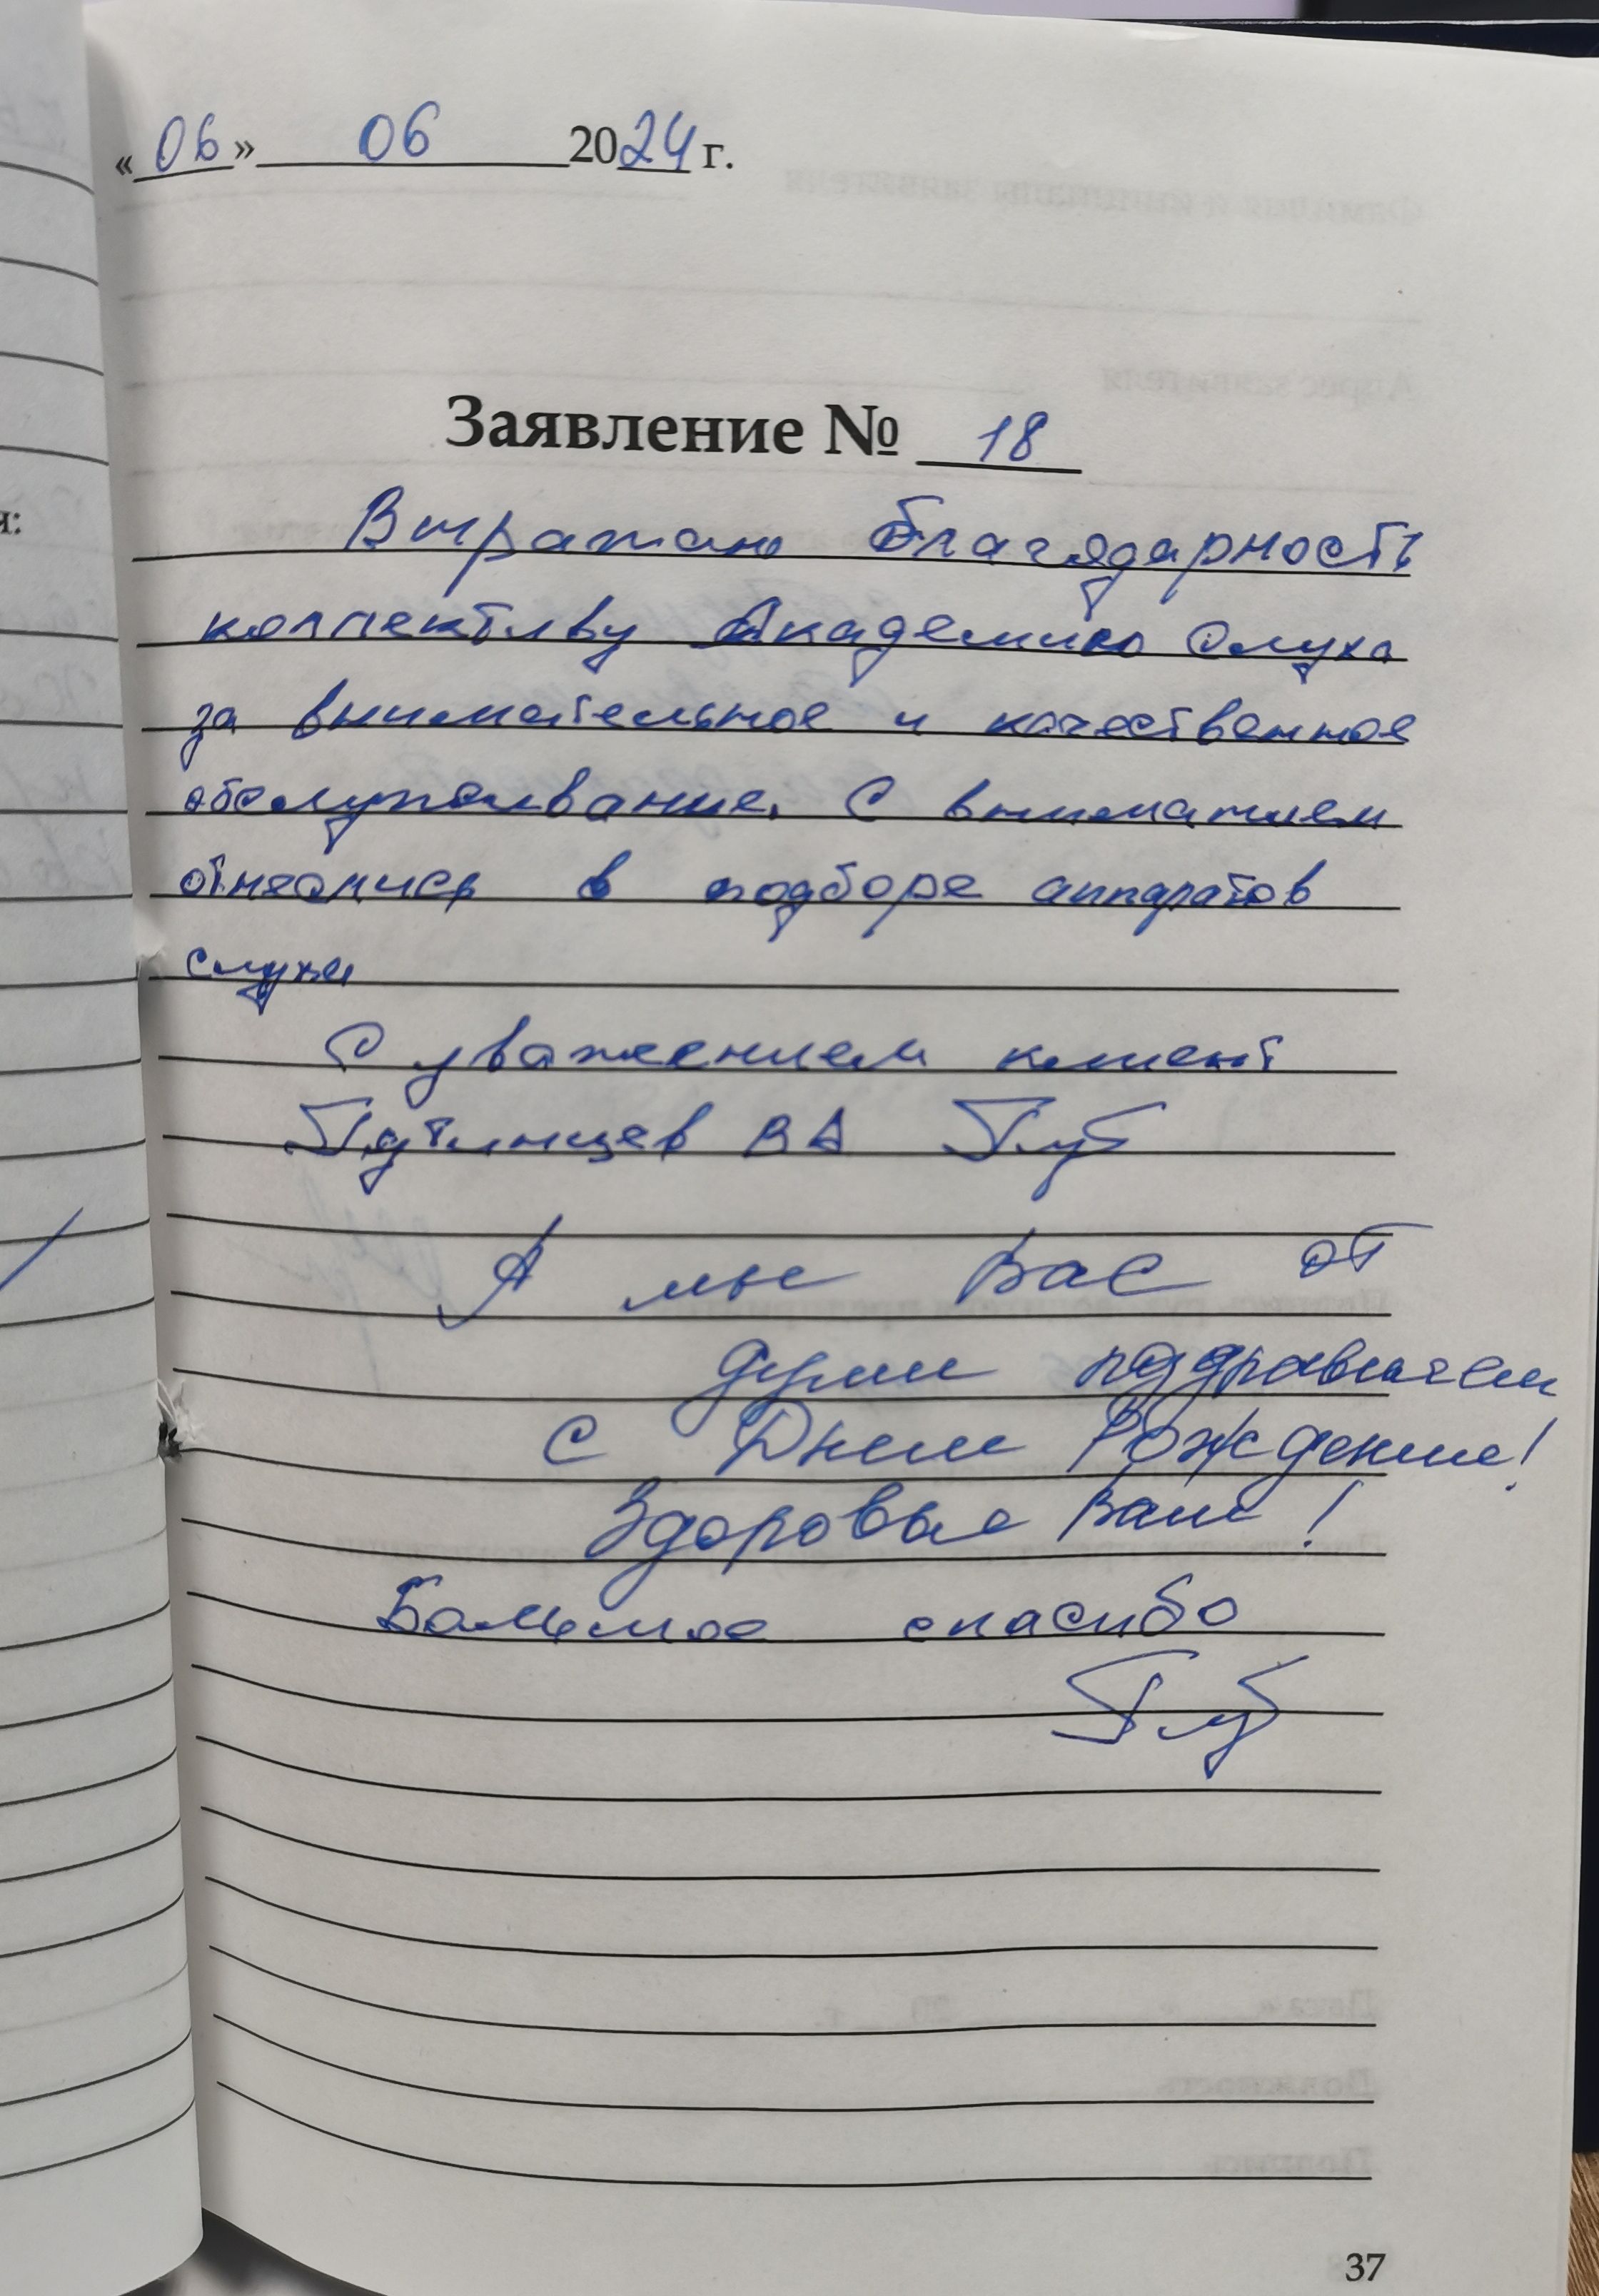 «06» 06 2024 г.
Заявление № 18
Выражаю благодарность
коллективу Академию Слуха
за внимательное и качественное
обслуживание. С вниманием
отнеслись в подборе аппаратов
слуха
С уважением клиент
Путинцев ВА
А мы Вас от
души поздравляем
с Днем Рождения!
Здоровья Вам!
Большое спасибо
37